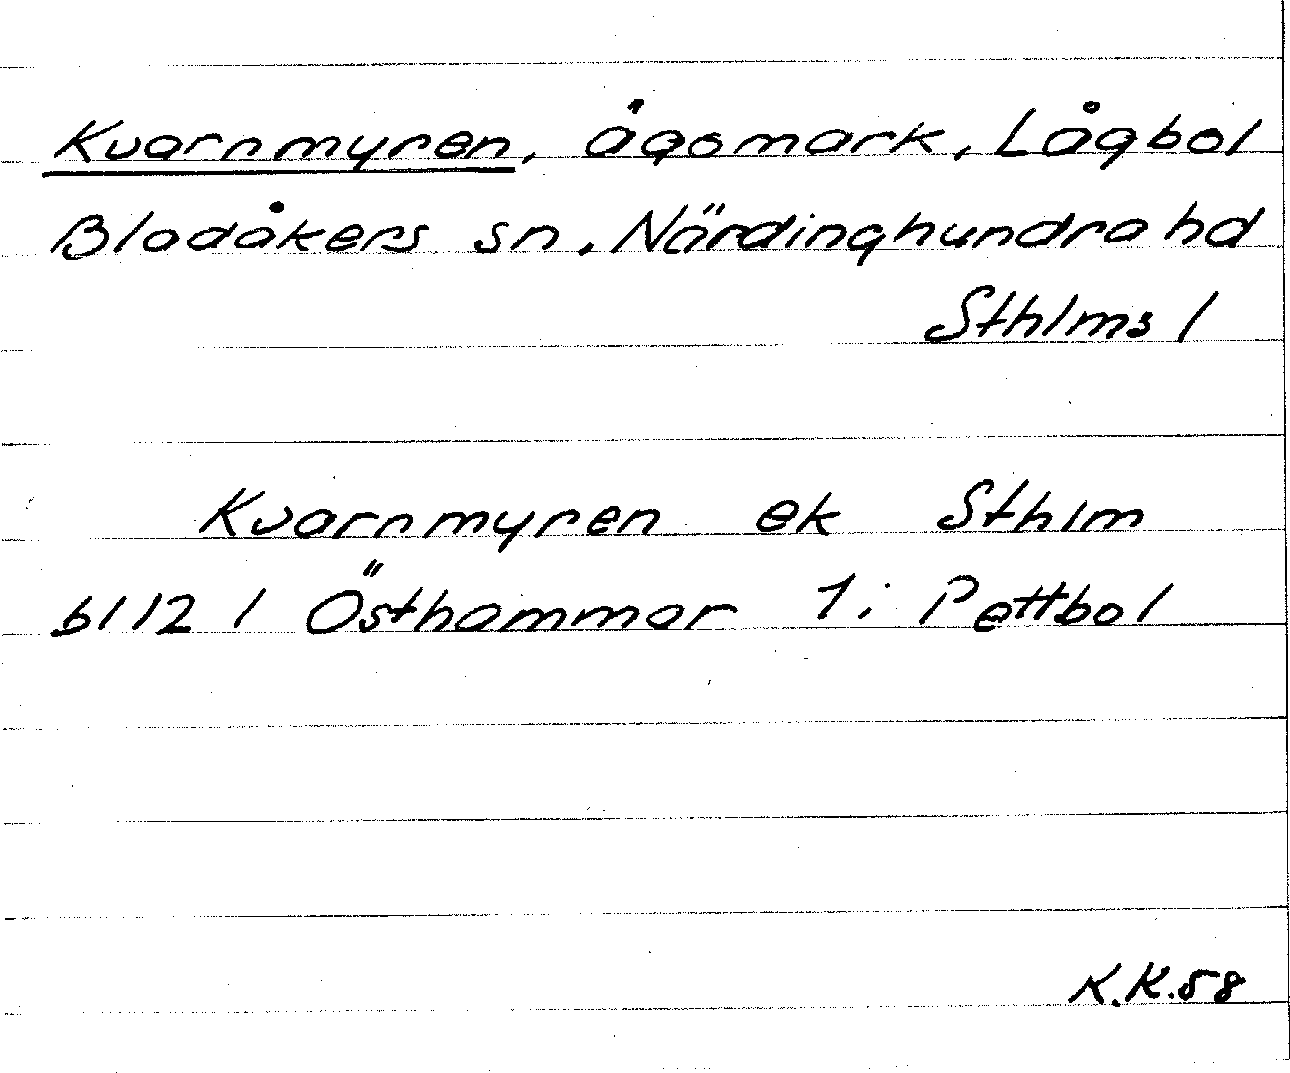 Kvarnmyren, ägomark, Lågbol
Bladåkers sn, Närdinghundra hd
Sthlms l
Kvarnmyren ek Sthlm
bl 12 l Östhammar 1: Pettbol
K.K.58